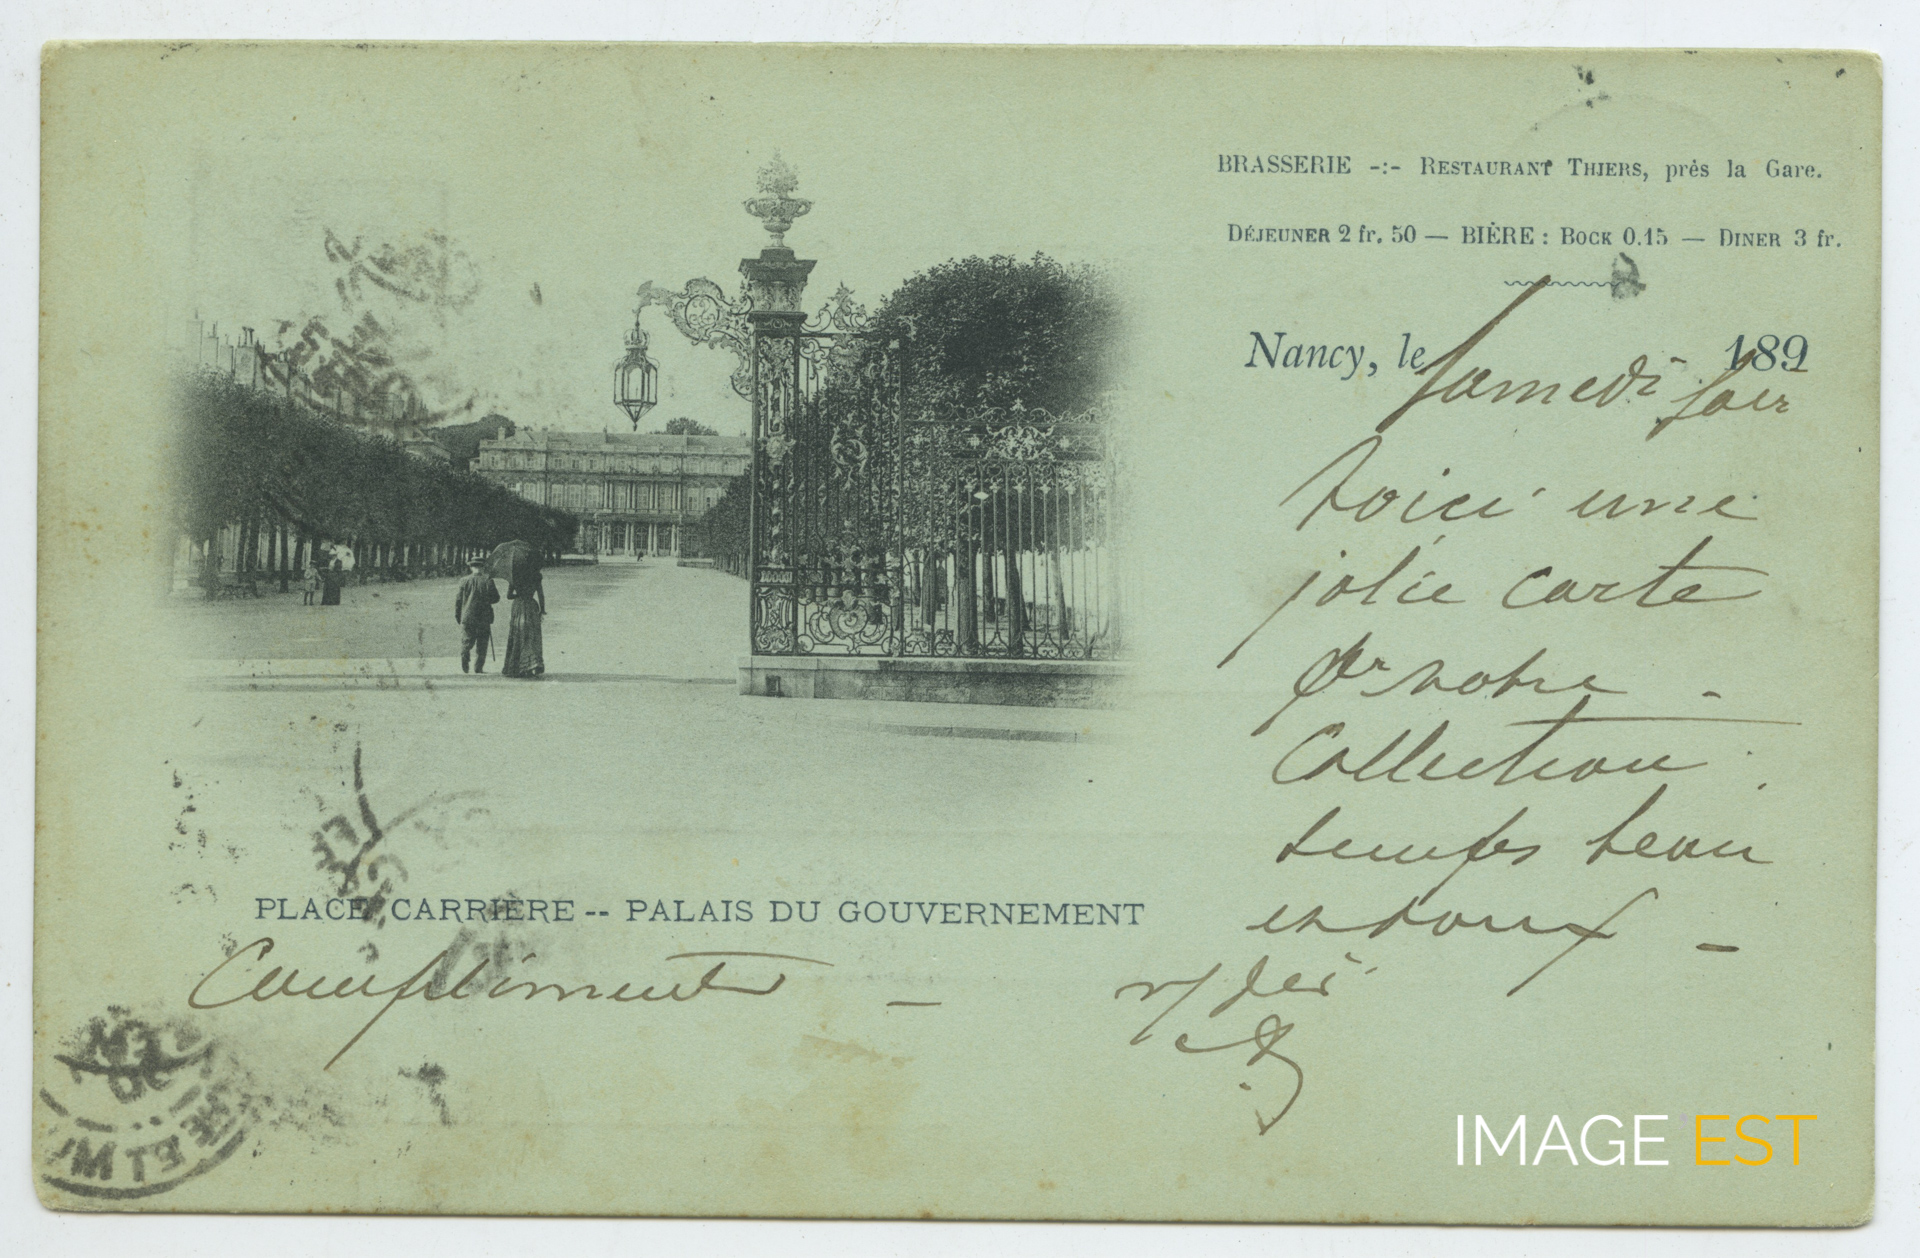 BRASSERIE -:- RESTAURANT THIERS, près la Gare.
DÉJEUNER 2 fr. 50 — BIÈRE : BOCK 0.15 — DINER 3 fr.
Nancy, le Samedi soir 189
Voici une
jolie carte
pr votre -
Collection
temps beau
et doux -
PLACE CARRIÈRE -- PALAIS DU GOUVERNEMENT
Compliments -
IMAGE EST